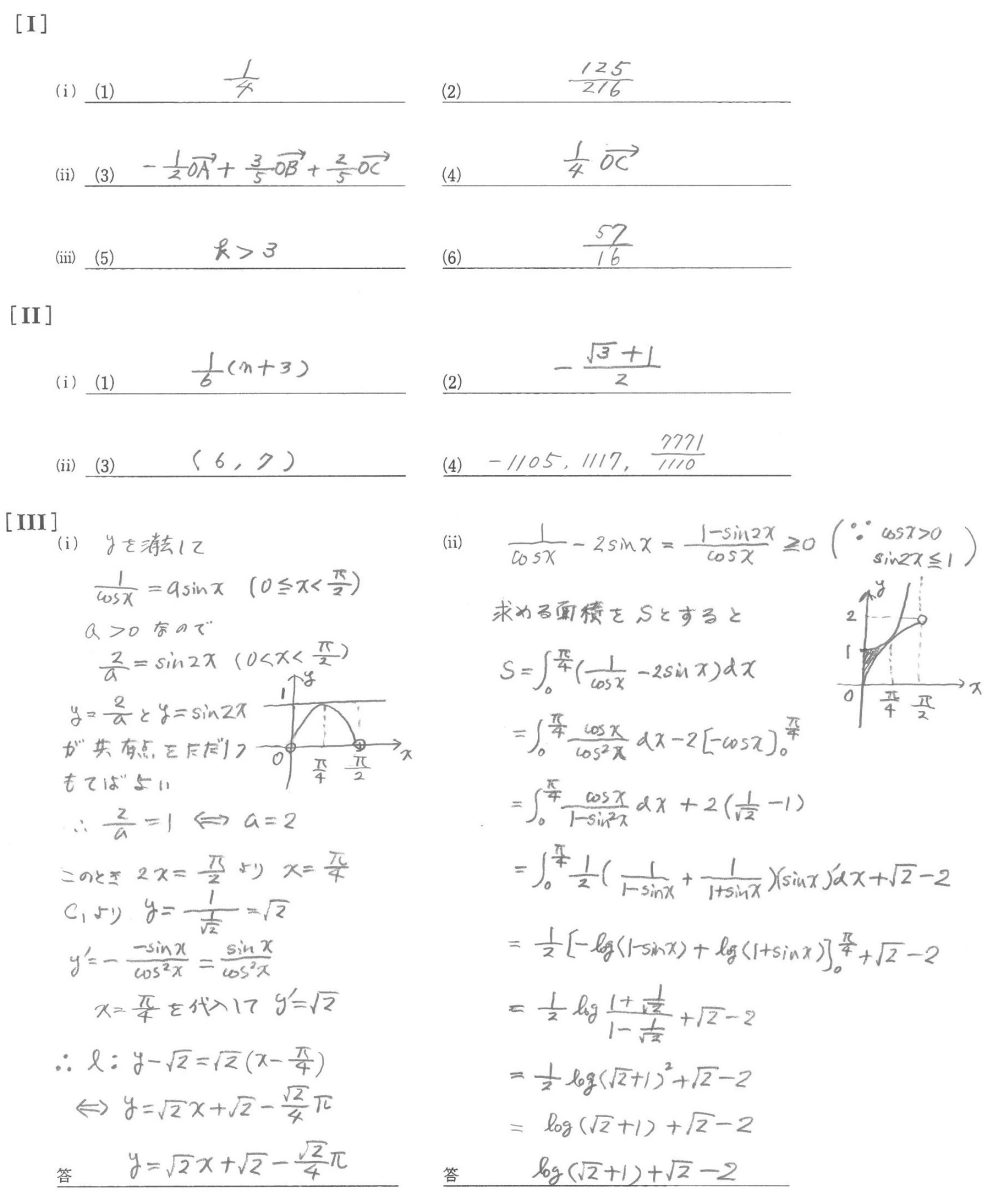 [I]
(i) (1) 1/4 (2) 125/216
(ii) (3) -1/2 OA→ + 3/5 OB→ + 2/5 OC→ (4) 1/4 OC→
(iii) (5) k > 3 (6) 57/16
[II]
(i) (1) 1/6 (n+3) (2) - (√3+1)/2
(ii) (3) (6, 7) (4) -1105, 1117, 7771/1110
[III]
(i) yを消去して
1/cosx = asinx (0≦x<π/2)
a>0 なので
2/a = sin2x (0<x<π/2)
y = 2/a と y = sin2x
が共有点をただ1つ
もてばよい
1 y 0 π/4 π/2 x
∴ 2/a = 1 ⇔ a=2
このとき 2x = π/2 より x = π/4
C₁より y = 1/(1/√2) = √2
y' = - (-sinx)/cos²x = sinx/cos²x
x = π/4 を代入して y' = √2
∴ l: y-√2 = √2(x-π/4)
⇔ y = √2x+√2-√2/4 π
答 y = √2x+√2-√2/4 π
(ii) 1/cosx - 2sinx = (1-sin2x)/cosx ≧0 (∵ cosx>0
sin2x≦1)
求める面積をSとすると
y 2 1 0 π/4 π/2 x
S = ∫₀^(π/4) (1/cosx - 2sinx)dx
= ∫₀^(π/4) cosx/cos²x dx - 2[-cosx]₀^(π/4)
= ∫₀^(π/4) cosx/(1-sin²x) dx + 2(1/√2 - 1)
= ∫₀^(π/4) 1/2 (1/(1-sinx) + 1/(1+sinx))(sinx)'dx+√2-2
= 1/2 [-log(1-sinx) + log(1+sinx)]₀^(π/4) + √2-2
= 1/2 log (1+1/√2)/(1-1/√2) + √2-2
= 1/2 log(√2+1)² + √2-2
= log(√2+1) + √2-2
答 log(√2+1) + √2-2